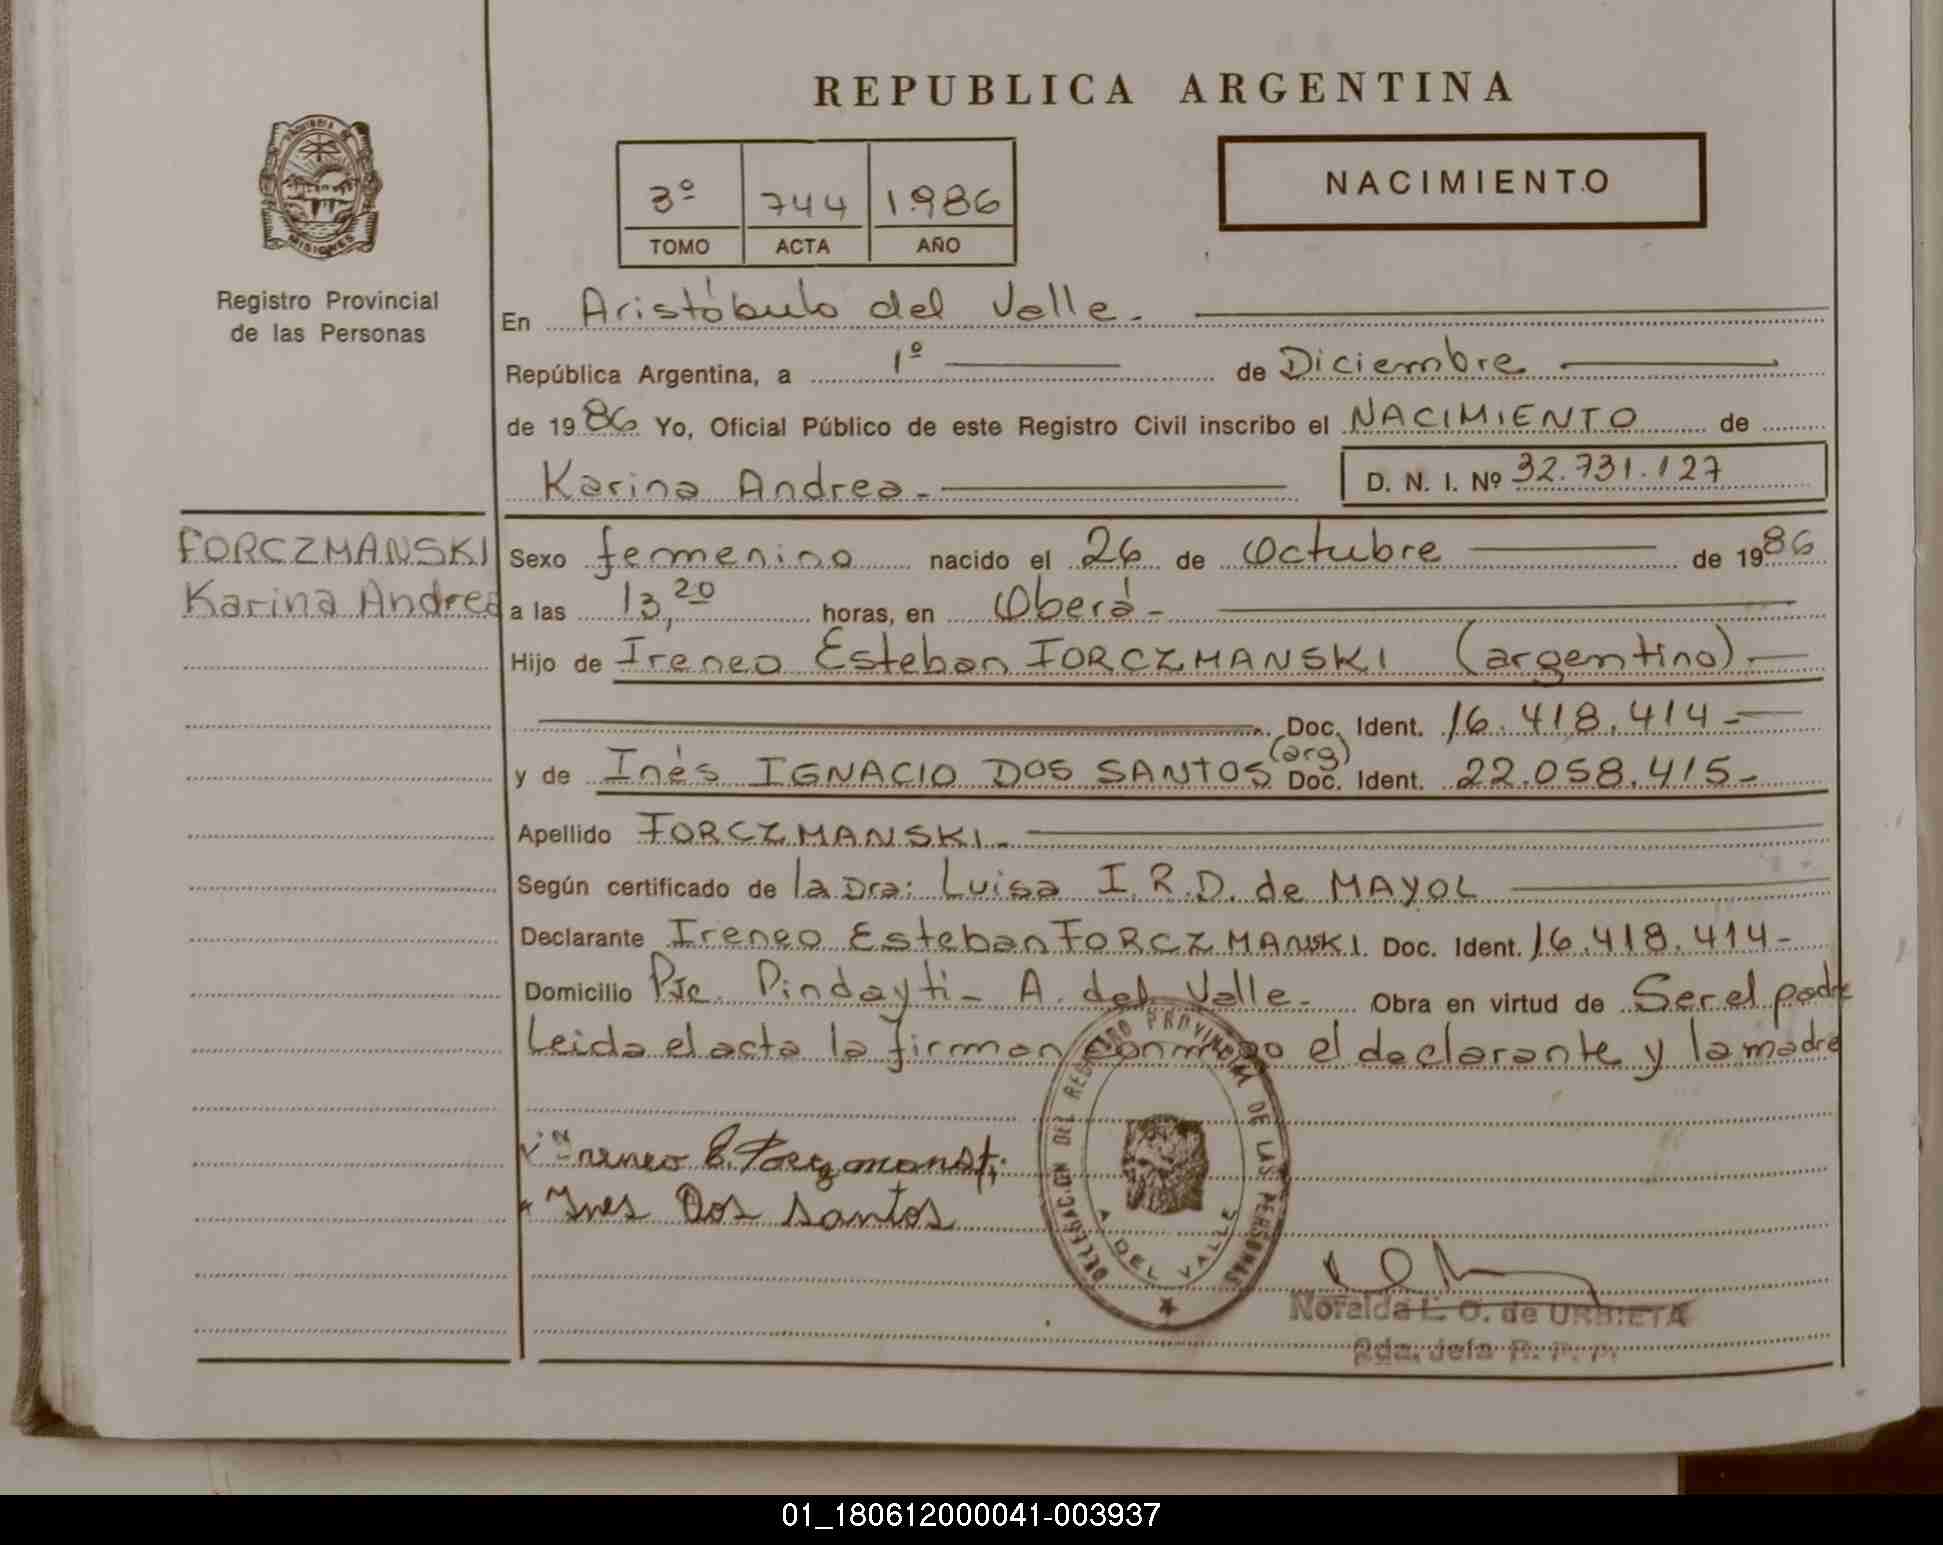 REPUBLICA ARGENTINA
NACIMIENTO
3º 744 1.986
TOMO ACTA AÑO
MISIONES
Registro Provincial
de las Personas
En Aristóbulo del Valle.-
República Argentina, a 1º de Diciembre
de 1986 Yo, Oficial Público de este Registro Civil inscribo el NACIMIENTO de
Karina Andrea.- D. N. I. Nº 32.731.127
FORCZMANSKI
Karina Andrea
Sexo femenino nacido el 26 de Octubre de 1986
a las 13,20 horas, en Oberá-
Hijo de Ireneo Esteban FORCZMANSKI (argentino)-
Doc. Ident. 16.418.414-
y de Inés IGNACIO DOS SANTOS (arg) Doc. Ident. 22.058.415-
Apellido FORCZMANSKI.-
Según certificado de la Dra: Luisa I.R.D. de MAYOL
Declarante Ireneo Esteban FORCZMANSKI. Doc. Ident. 16.418.414-
Domicilio Pje. Pindayti- A. del Valle.- Obra en virtud de Ser el padre
Leida el acta la firman conmigo el declarante y la madre
Ireneo E. Forczmanski
Ines Dos Santos
DELEGACION DEL REGISTRO PROVINCIAL DE LAS PERSONAS
A DEL VALLE
Noralda L. O. de URBIETA
2da. Jefa R. P. P.
01_180612000041-003937